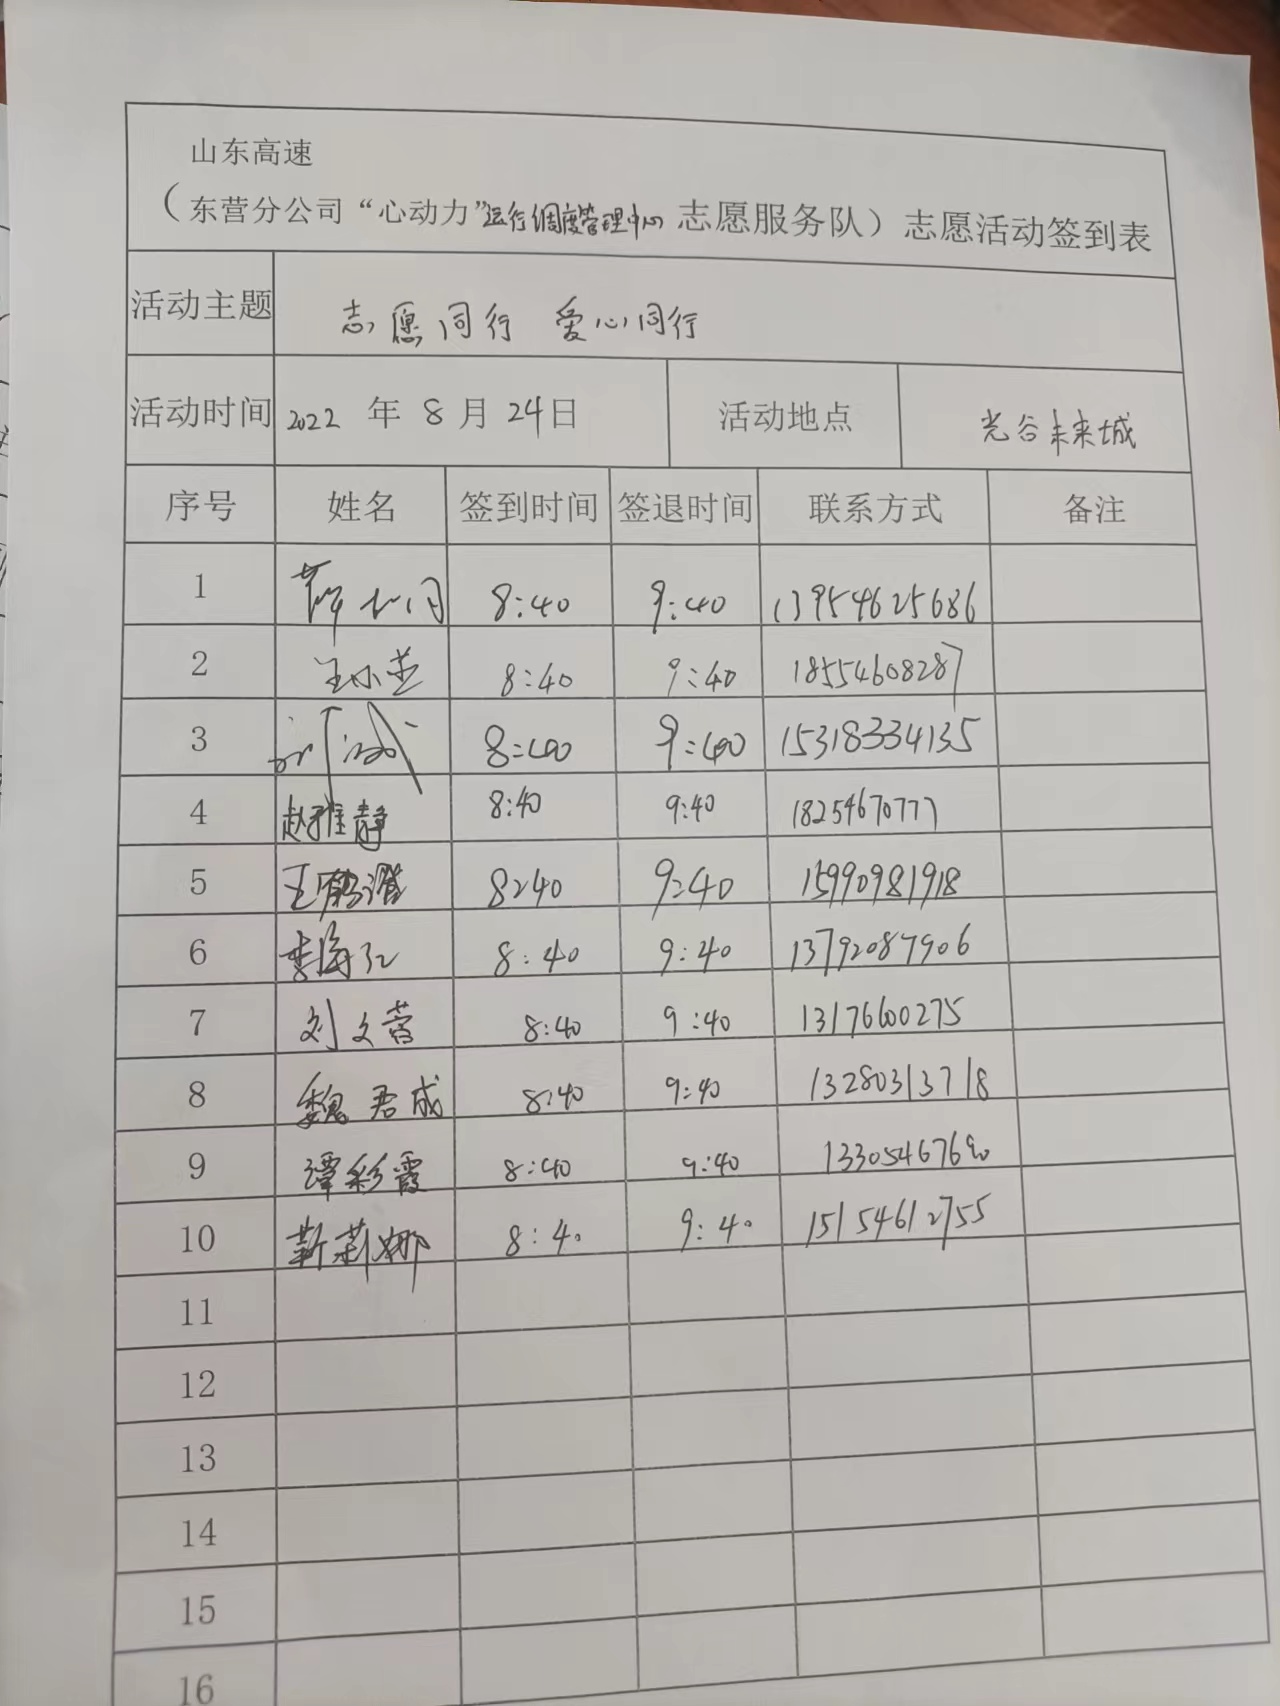 山东高速
（东营分公司“心动力”运行调度管理中心 志愿服务队）志愿活动签到表
活动主题 志愿同行 爱心同行
活动时间 2022 年 8 月 24日 活动地点 光谷未来城
序号 姓名 签到时间 签退时间 联系方式 备注
1 8:40 9:40 13954625686
2 8:40 9:40 18554608287
3 8:40 9:40 15318334135
4 赵雅静 8:40 9:40 18254670777
5 8:40 9:40 15990981918
6 李海红 8:40 9:40 13792087906
7 刘文蓉 8:40 9:40 13176600275
8 魏君成 8:40 9:40 13280313718
9 谭彩霞 8:40 9:40 13305467690
10 靳莉娜 8:40 9:40 15154612755
11
12
13
14
15
16